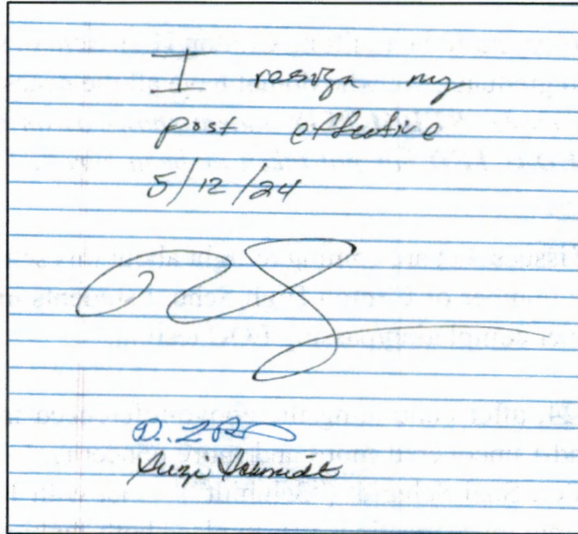 I resign my
post effective
5/12/24
Suzi Schmidt